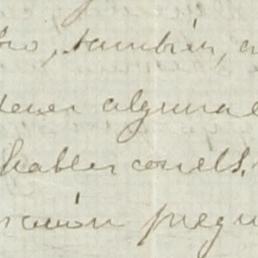 tro, también, a
tener alguna
hablar con ells.
ración pregu